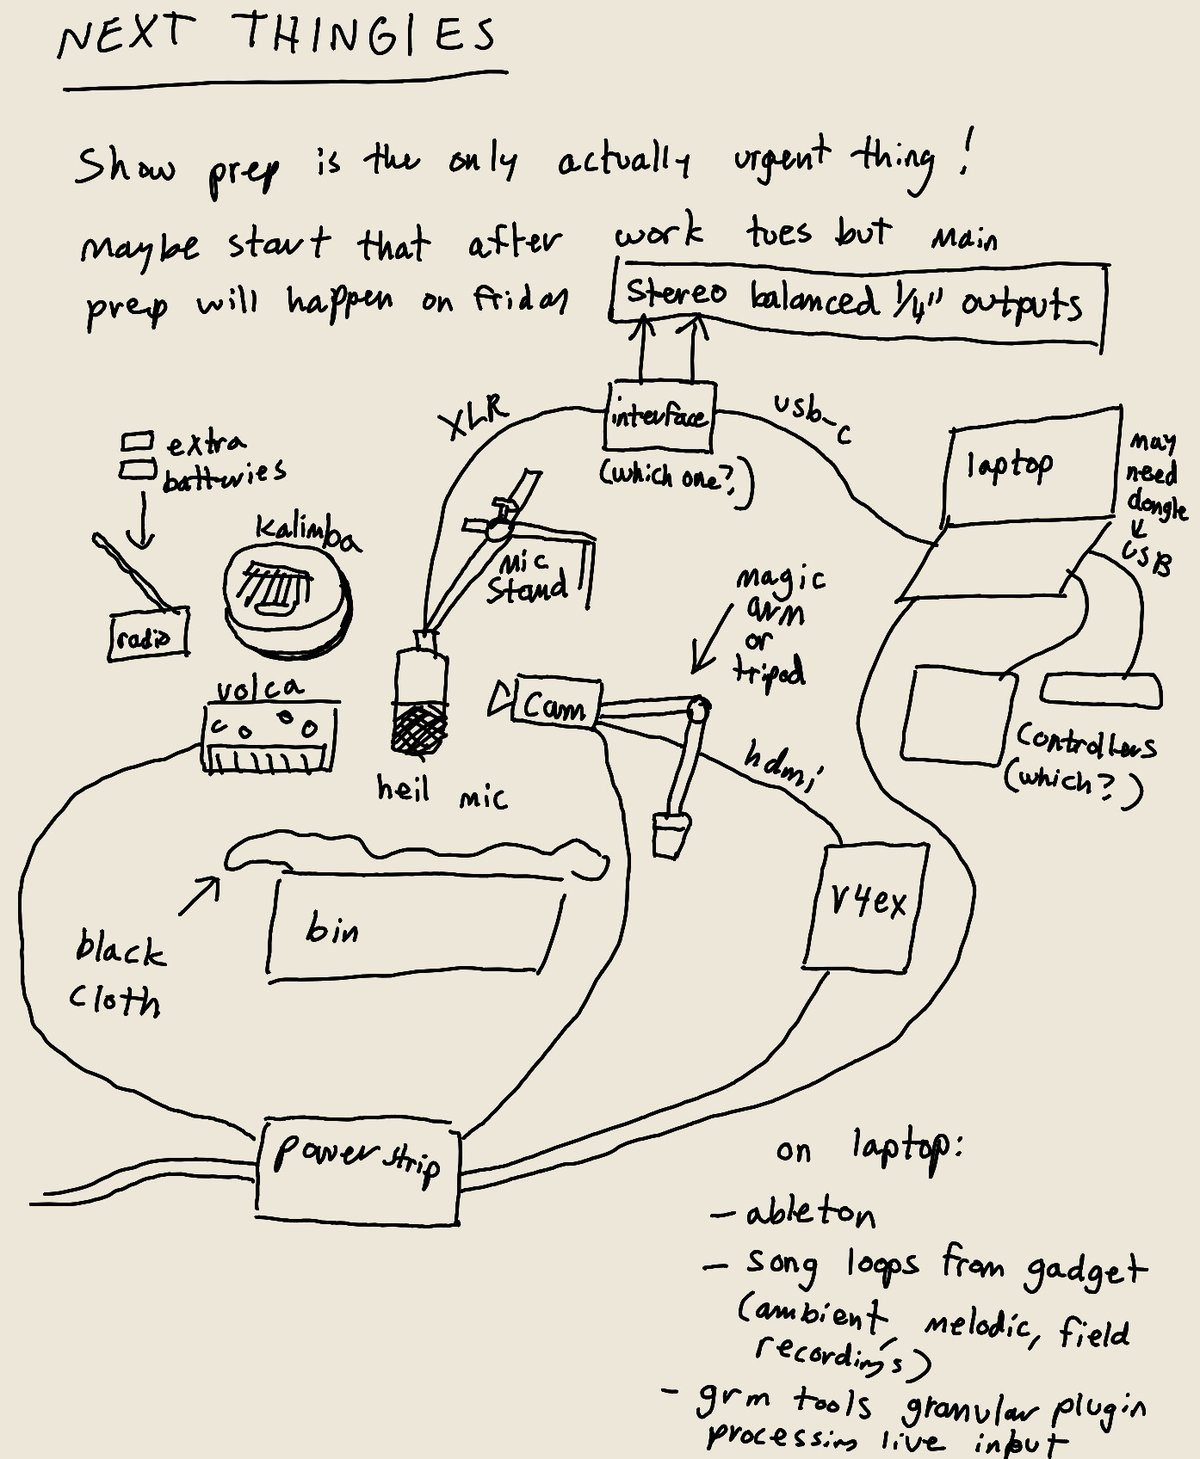 NEXT THINGIES
Show prep is the only actually urgent thing!
Maybe start that after work tues but main
prep will happen on friday
Stereo balanced 1/4" outputs
XLR
interface
(which one?)
usb-c
laptop
may
need
dongle
USB
extra
batteries
kalimba
radio
mic
stand
magic
arm
or
tripod
volca
cam
hdmi
controllers
(which?)
heil mic
v4ex
bin
black
cloth
power strip
on laptop:
- ableton
- song loops from gadget
(ambient, melodic, field
recordings)
- grm tools granular plugin
processing live input